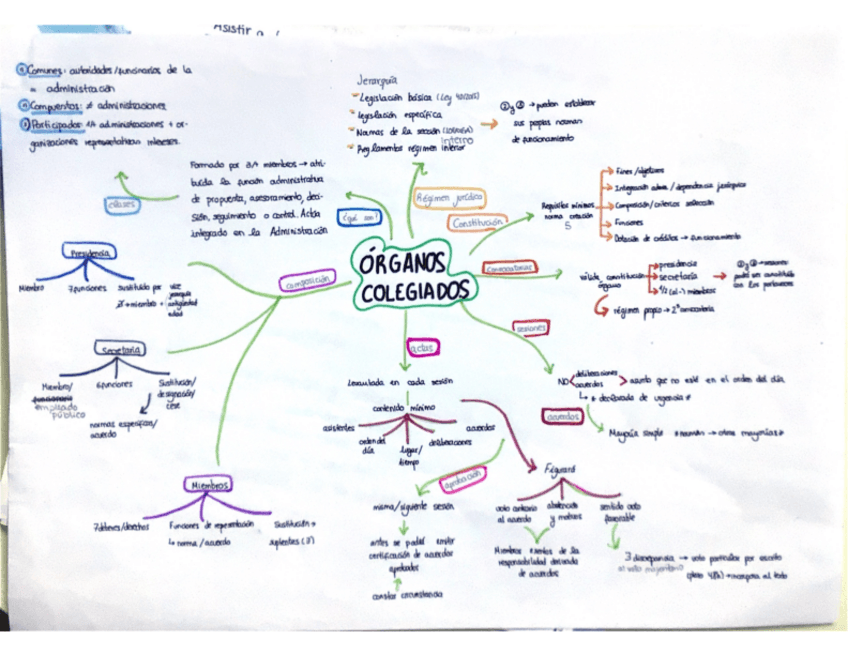 Asistir a
① Comunes: autoridades/funcionarios de la
= administración
② Compuestos: ≠ administraciones
③ Participados: administraciones + or-
ganizaciones representativas intereses.
clases
Formado por 3/+ miembros → atri-
buida la función administrativa
de propuesta, asesoramiento, deci-
sión, seguimiento o control. Actúa
integrado en la Administración
¿qué son?
Jerarquía
Legislación básica (Ley 40/2015)
legislación específica
Normas de la sección
interno
Reglamentos régimen interior
② y ③ → pueden establecer
sus propias normas
de funcionamiento
Régimen jurídico
Constitución
Requisitos mínimos
norma creación
5
Fines/objetivos
Integración admva / dependencia jerárquica
Composición/criterios
Funciones
Dotación de créditos → funcionamiento
ÓRGANOS
COLEGIADOS
convocatorias
válida constitución
órgano
presidencia
secretaría
1/2 miembros
régimen propio → 2ª convocatoria
composición
Presidencia
Miembro
7 funciones
Sustituido por
vice
miembro + antigüedad
y edad
Secretaría
Miembro/
funcionario
empleado
público
6 funciones
Sustitución/
designación/
cese
normas específicas/
acuerdo
Miembros
7 deberes/derechos
Funciones de representación
↳ norma/acuerdo
Sustitución →
suplentes
actas
levantada en cada sesión
contenido mínimo
asistentes
orden del
día
lugar/
tiempo
deliberaciones
acuerdos
aprobación
misma/siguiente sesión
antes se podrá emitir
certificación de acuerdos
aprobados
constar circunstancia
sesiones
NO
deliberaciones
acuerdos
asunto que no esté en el orden del día
↳ * declarada de urgencia *
acuerdos
Mayoría simple
otras mayorías *
Figurará
voto contrario
al acuerdo
abstención
y motivos
sentido voto
favorable
Miembros exentos de la
responsabilidad derivada
de acuerdos
discrepancia → voto particular por escrito
al voto mayoritario
(plazo 48h) → incorpora al texto